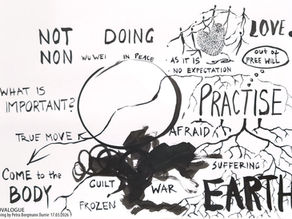 NOT DOING
NON WU WEI IN PEACE
AS IT IS
NO EXPECTATION
LOVE
OUT OF
FREE WILL
WHAT IS
IMPORTANT?
PRACTISE
TRUE MOVE
AFRAID
COME to the
BODY
GUILT
FROZEN
WAR
SUFFERING
EARTH
VALOGUE
by Petra Bongmans Dunir 17.03.2026